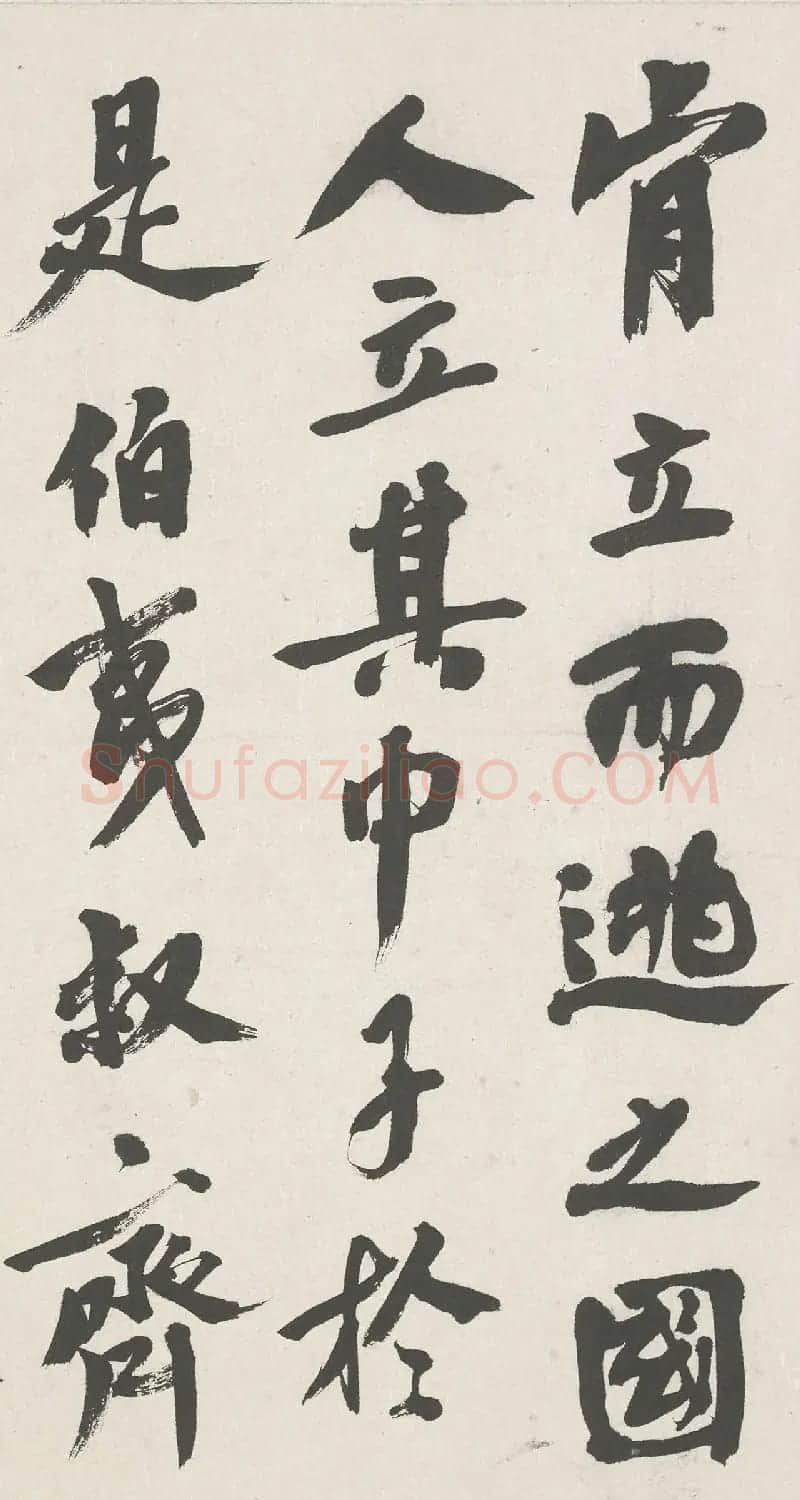 肯立而逃之國
人立其中子於
是伯夷叔齊
Shufaziliao.COM